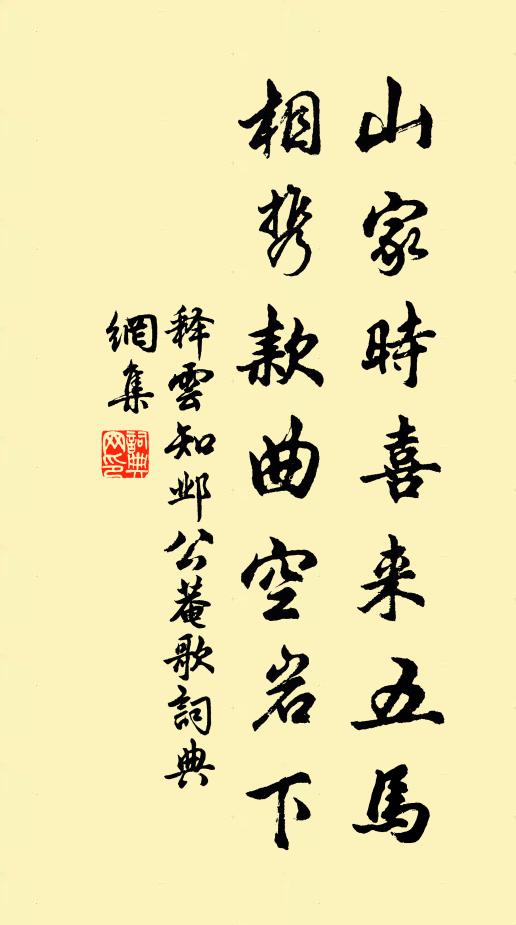 山家時喜来五馬
相携款曲空岩下
释雲知邺公菴歌詞典
網集
詞典
网印